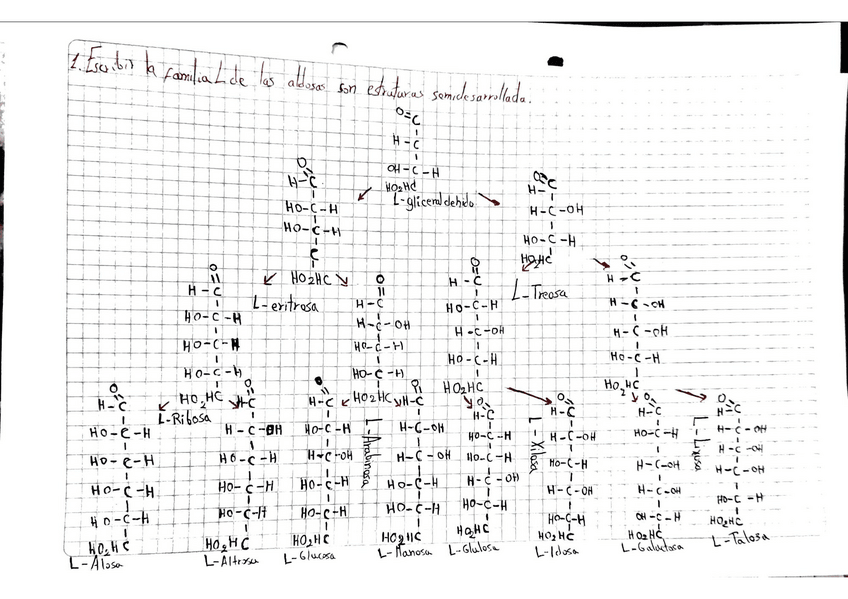 1. Escribir la familia L de las aldosas son estruturas semidesarrollada.
O=C
H-C
OH-C-H
HO2HC
L-gliceraldehido
O
H-C
HO-C-H
HO-C-H
C
HO2HC
L-eritrosa
O
H-C
H-C-OH
HO-C-H
HO2HC
L-Treosa
O
H-C
HO-C-H
HO-C-H
HO-C-H
HO2HC
L-Ribosa
O
H-C
H-C-OH
HO-C-H
HO-C-H
HO2HC
L-Arabinosa
O
H-C
HO-C-H
H-C-OH
HO-C-H
HO2HC
L-Xilosa
O
H-C
H-C-OH
H-C-OH
HO-C-H
HO2HC
L-Lixosa
O
H-C
HO-C-H
HO-C-H
HO-C-H
HO-C-H
HO2HC
L-Alosa
O
H-C
H-C-OH
HO-C-H
HO-C-H
HO-C-H
HO2HC
L-Altrosa
O
H-C
HO-C-H
H-C-OH
HO-C-H
HO-C-H
HO2HC
L-Glucosa
O
H-C
H-C-OH
H-C-OH
HO-C-H
HO-C-H
HO2HC
L-Manosa
O
H-C
HO-C-H
HO-C-H
H-C-OH
HO-C-H
HO2HC
L-Glulosa
O
H-C
H-C-OH
HO-C-H
H-C-OH
HO-C-H
HO2HC
L-Idosa
O
H-C
HO-C-H
H-C-OH
H-C-OH
OH-C-H
HO2HC
L-Galactosa
O
H-C
H-C-OH
H-C-OH
H-C-OH
HO-C-H
HO2HC
L-Talosa